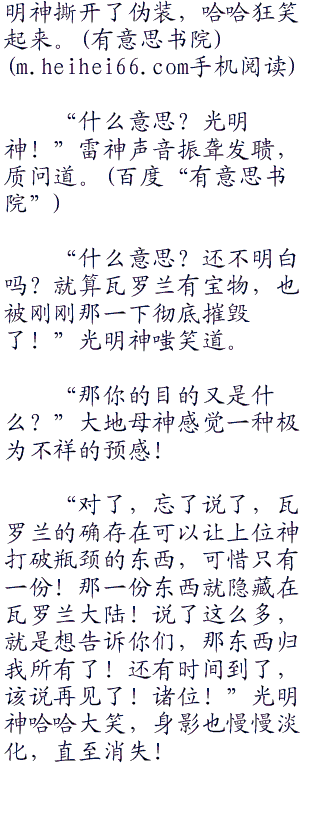 明神撕开了伪装，哈哈狂笑
起来。(有意思书院)
(m.heihei66.com手机阅读)
“什么意思？光明
神！”雷神声音振聋发聩，
质问道。(百度“有意思书
院”)
“什么意思？还不明白
吗？就算瓦罗兰有宝物，也
被刚刚那一下彻底摧毁
了！”光明神嗤笑道。
“那你的目的又是什
么？”大地母神感觉一种极
为不祥的预感！
“对了，忘了说了，瓦
罗兰的确存在可以让上位神
打破瓶颈的东西，可惜只有
一份！那一份东西就隐藏在
瓦罗兰大陆！说了这么多，
就是想告诉你们，那东西归
我所有了！还有时间到了，
该说再见了！诸位！”光明
神哈哈大笑，身影也慢慢淡
化，直至消失！